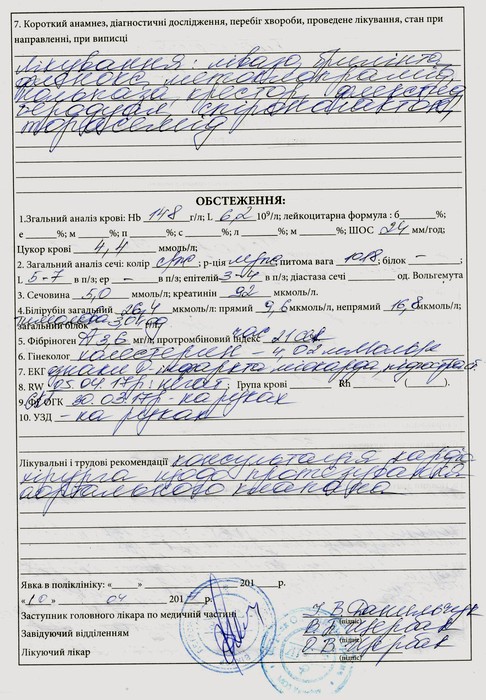 7. Короткий анамнез, діагностичні дослідження, перебіг хвороби, проведене лікування, стан при
направленні, при виписці
Лікування: лівазо, брилінта
метоклопрамід
крестор,
спіронолактон,
торасемид
ОБСТЕЖЕННЯ:
1.Згальний аналіз крові: Hb 148 г/л; L 6,2 10⁹/л; лейкоцитарна формула : б %;
е %; м %; п %; с %; л %; м %; ШОС 24 мм/год;
Цукор крові 4,4 ммоль/л;
2. Загальний аналіз сечі: колір с/ж; р-ція питома вага 1018; білок – ;
L 5-7 в п/з; ер – в п/з; епітелій 3-4 в п/з; діастаза сечі од. Вольгемута
3. Сечовина 5,0 ммоль/л; креатинін 92 мкмоль/л.
4.Білірубін загадний 26,4 ммоль/л: прямий 9,6 мкмоль/л, непрямий 16,8 мкмоль/л;
загальний білок
5. Фібриноген А 3,6 мг/л; протромбіновий індекс час 21 сек
6. Гінеколог холестерин – 4,02 ммоль/л
7. ЕКГ ознаки інфаркта міокарда,
8. RW 05.04.17р: негат; Група крові Rh ( ).
9. ФГ ОГК 30.03.17р - на руках
10. УЗД - на руках
Лікувальні і трудові рекомендації консультація кардіо-
хірурга щодо протезування
аортального клапана
Явка в поліклініку: « » 201 р.
«10» 04 201 р.
Заступник головного лікара по медичній частині
(підпис)
Завідуючий відділенням Щербак
(підпис)
Лікуючий лікар О.В. Щербак
(підпис)